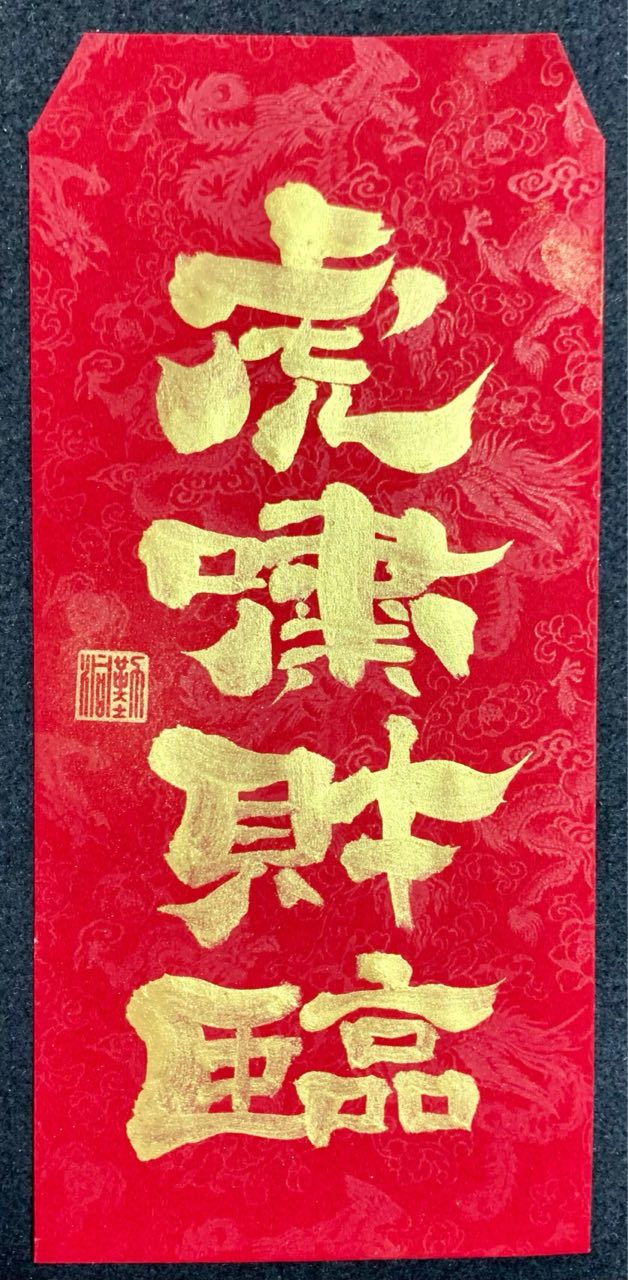 虎嘯財臨